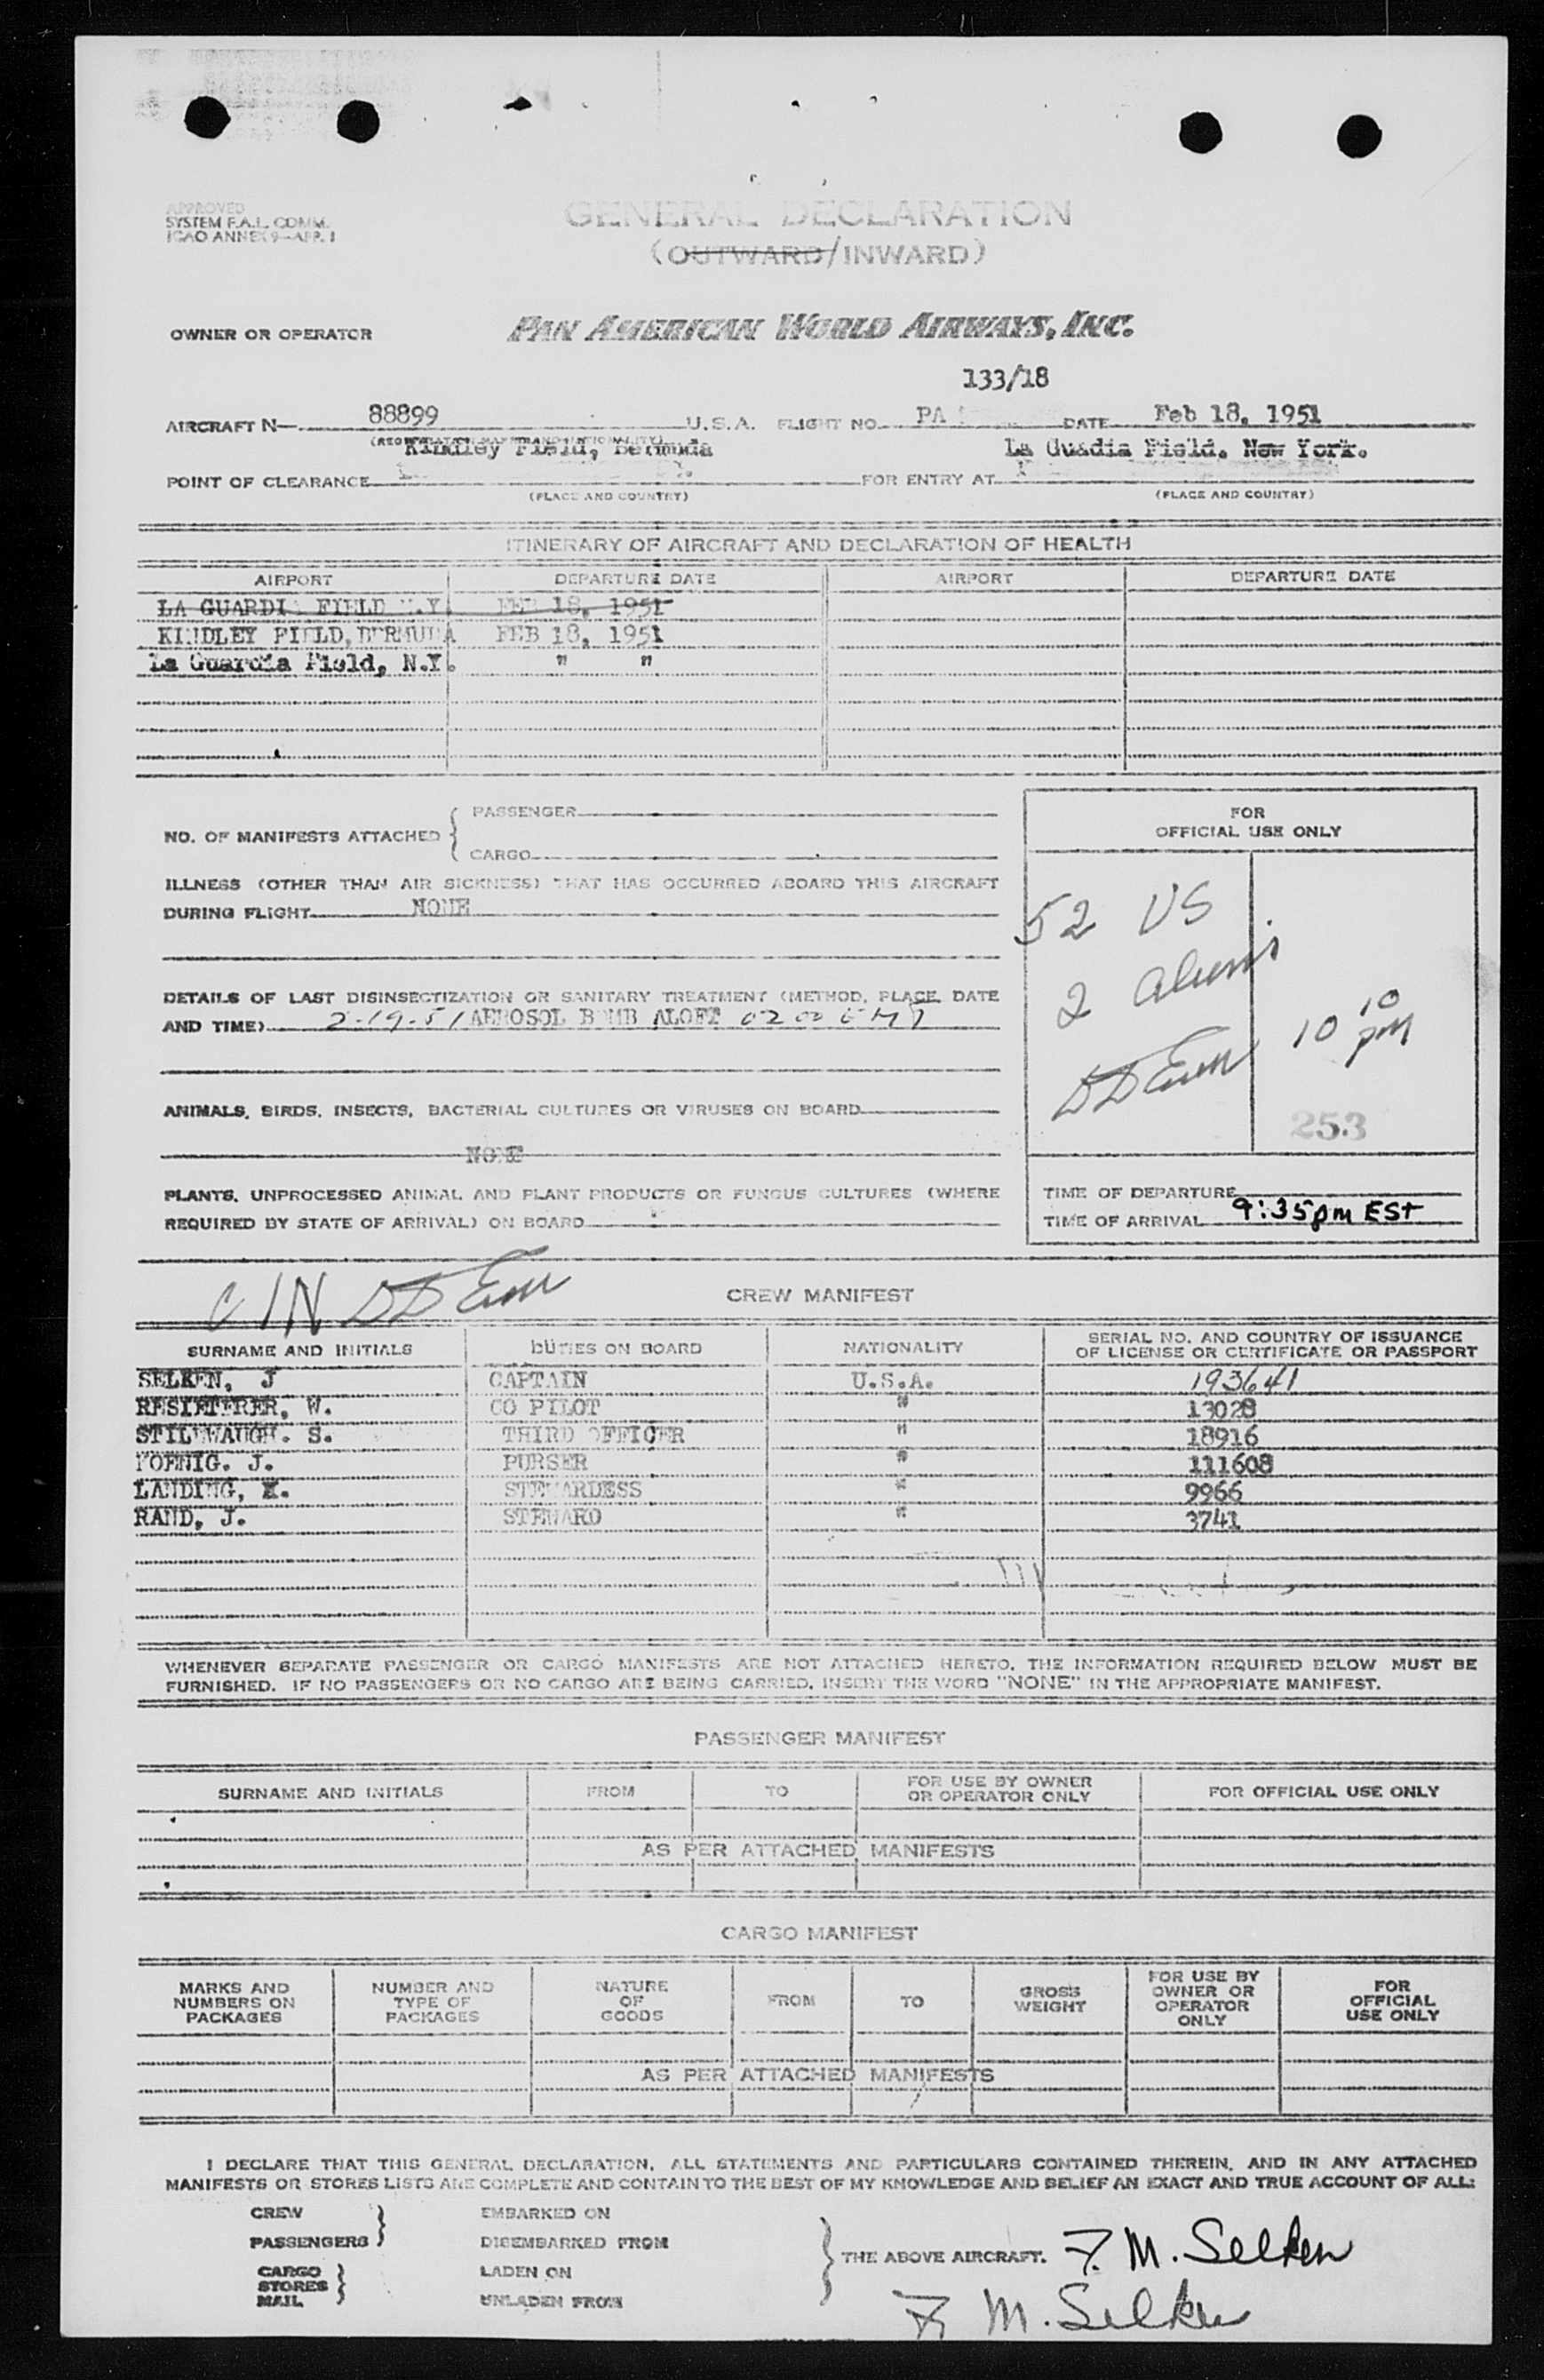 APPROVED
SYSTEM F.A.L. COMM.
ICAO ANNEX 9—APP. 1
GENERAL DECLARATION
(OUTWARD/INWARD)
OWNER OR OPERATOR PAN AMERICAN WORLD AIRWAYS, INC.
133/18
AIRCRAFT N— 88899 U.S.A. FLIGHT NO. PA DATE Feb 18, 1951
(REGISTRATION MARK AND NATIONALITY)
Kindley Field, Bermuda La Guadia Field. New York.
POINT OF CLEARANCE FOR ENTRY AT
(PLACE AND COUNTRY) (PLACE AND COUNTRY)
ITINERARY OF AIRCRAFT AND DECLARATION OF HEALTH
AIRPORT DEPARTURE DATE AIRPORT DEPARTURE DATE
LA GUARDIA FIELD N.Y. FEB 18, 1951
KINDLEY FIELD, BERMUDA FEB 18, 1951
La Guardia Field, N.Y. " "
NO. OF MANIFESTS ATTACHED { PASSENGER
CARGO
FOR
OFFICIAL USE ONLY
ILLNESS (OTHER THAN AIR SICKNESS) THAT HAS OCCURRED ABOARD THIS AIRCRAFT
DURING FLIGHT NONE
52 US
2 aliens
10 10 pm
253
DETAILS OF LAST DISINSECTIZATION OR SANITARY TREATMENT (METHOD, PLACE, DATE
AND TIME) 2-19-51 AEROSOL BOMB ALOFT 0200 GMT
ANIMALS, BIRDS, INSECTS, BACTERIAL CULTURES OR VIRUSES ON BOARD
NONE
PLANTS, UNPROCESSED ANIMAL AND PLANT PRODUCTS OR FUNGUS CULTURES (WHERE
REQUIRED BY STATE OF ARRIVAL) ON BOARD
TIME OF DEPARTURE
TIME OF ARRIVAL 9:35pm EST
CREW MANIFEST
SURNAME AND INITIALS DUTIES ON BOARD NATIONALITY SERIAL NO. AND COUNTRY OF ISSUANCE
OF LICENSE OR CERTIFICATE OR PASSPORT
SELKEN, J CAPTAIN U.S.A. 193641
W. CO PILOT " 13028
S. THIRD OFFICER " 18916
J. PURSER " 111608
LANDING, STEWARDESS " 9966
RAND, J. STEWARD " 3741
WHENEVER SEPARATE PASSENGER OR CARGO MANIFESTS ARE NOT ATTACHED HERETO, THE INFORMATION REQUIRED BELOW MUST BE
FURNISHED. IF NO PASSENGERS OR NO CARGO ARE BEING CARRIED, INSERT THE WORD "NONE" IN THE APPROPRIATE MANIFEST.
PASSENGER MANIFEST
SURNAME AND INITIALS FROM TO FOR USE BY OWNER
OR OPERATOR ONLY FOR OFFICIAL USE ONLY
AS PER ATTACHED MANIFESTS
CARGO MANIFEST
MARKS AND
NUMBERS ON
PACKAGES
NUMBER AND
TYPE OF
PACKAGES
NATURE
OF
GOODS
FROM
TO
GROSS
WEIGHT
FOR USE BY
OWNER OR
OPERATOR
ONLY
FOR
OFFICIAL
USE ONLY
AS PER ATTACHED MANIFESTS
I DECLARE THAT THIS GENERAL DECLARATION, ALL STATEMENTS AND PARTICULARS CONTAINED THEREIN, AND IN ANY ATTACHED
MANIFESTS OR STORES LISTS ARE COMPLETE AND CONTAIN TO THE BEST OF MY KNOWLEDGE AND BELIEF AN EXACT AND TRUE ACCOUNT OF ALL:
CREW EMBARKED ON
PASSENGERS DISEMBARKED FROM
CARGO LADEN ON
STORES
MAIL UNLADEN FROM
THE ABOVE AIRCRAFT. F. M. Selken
F. M. Selken